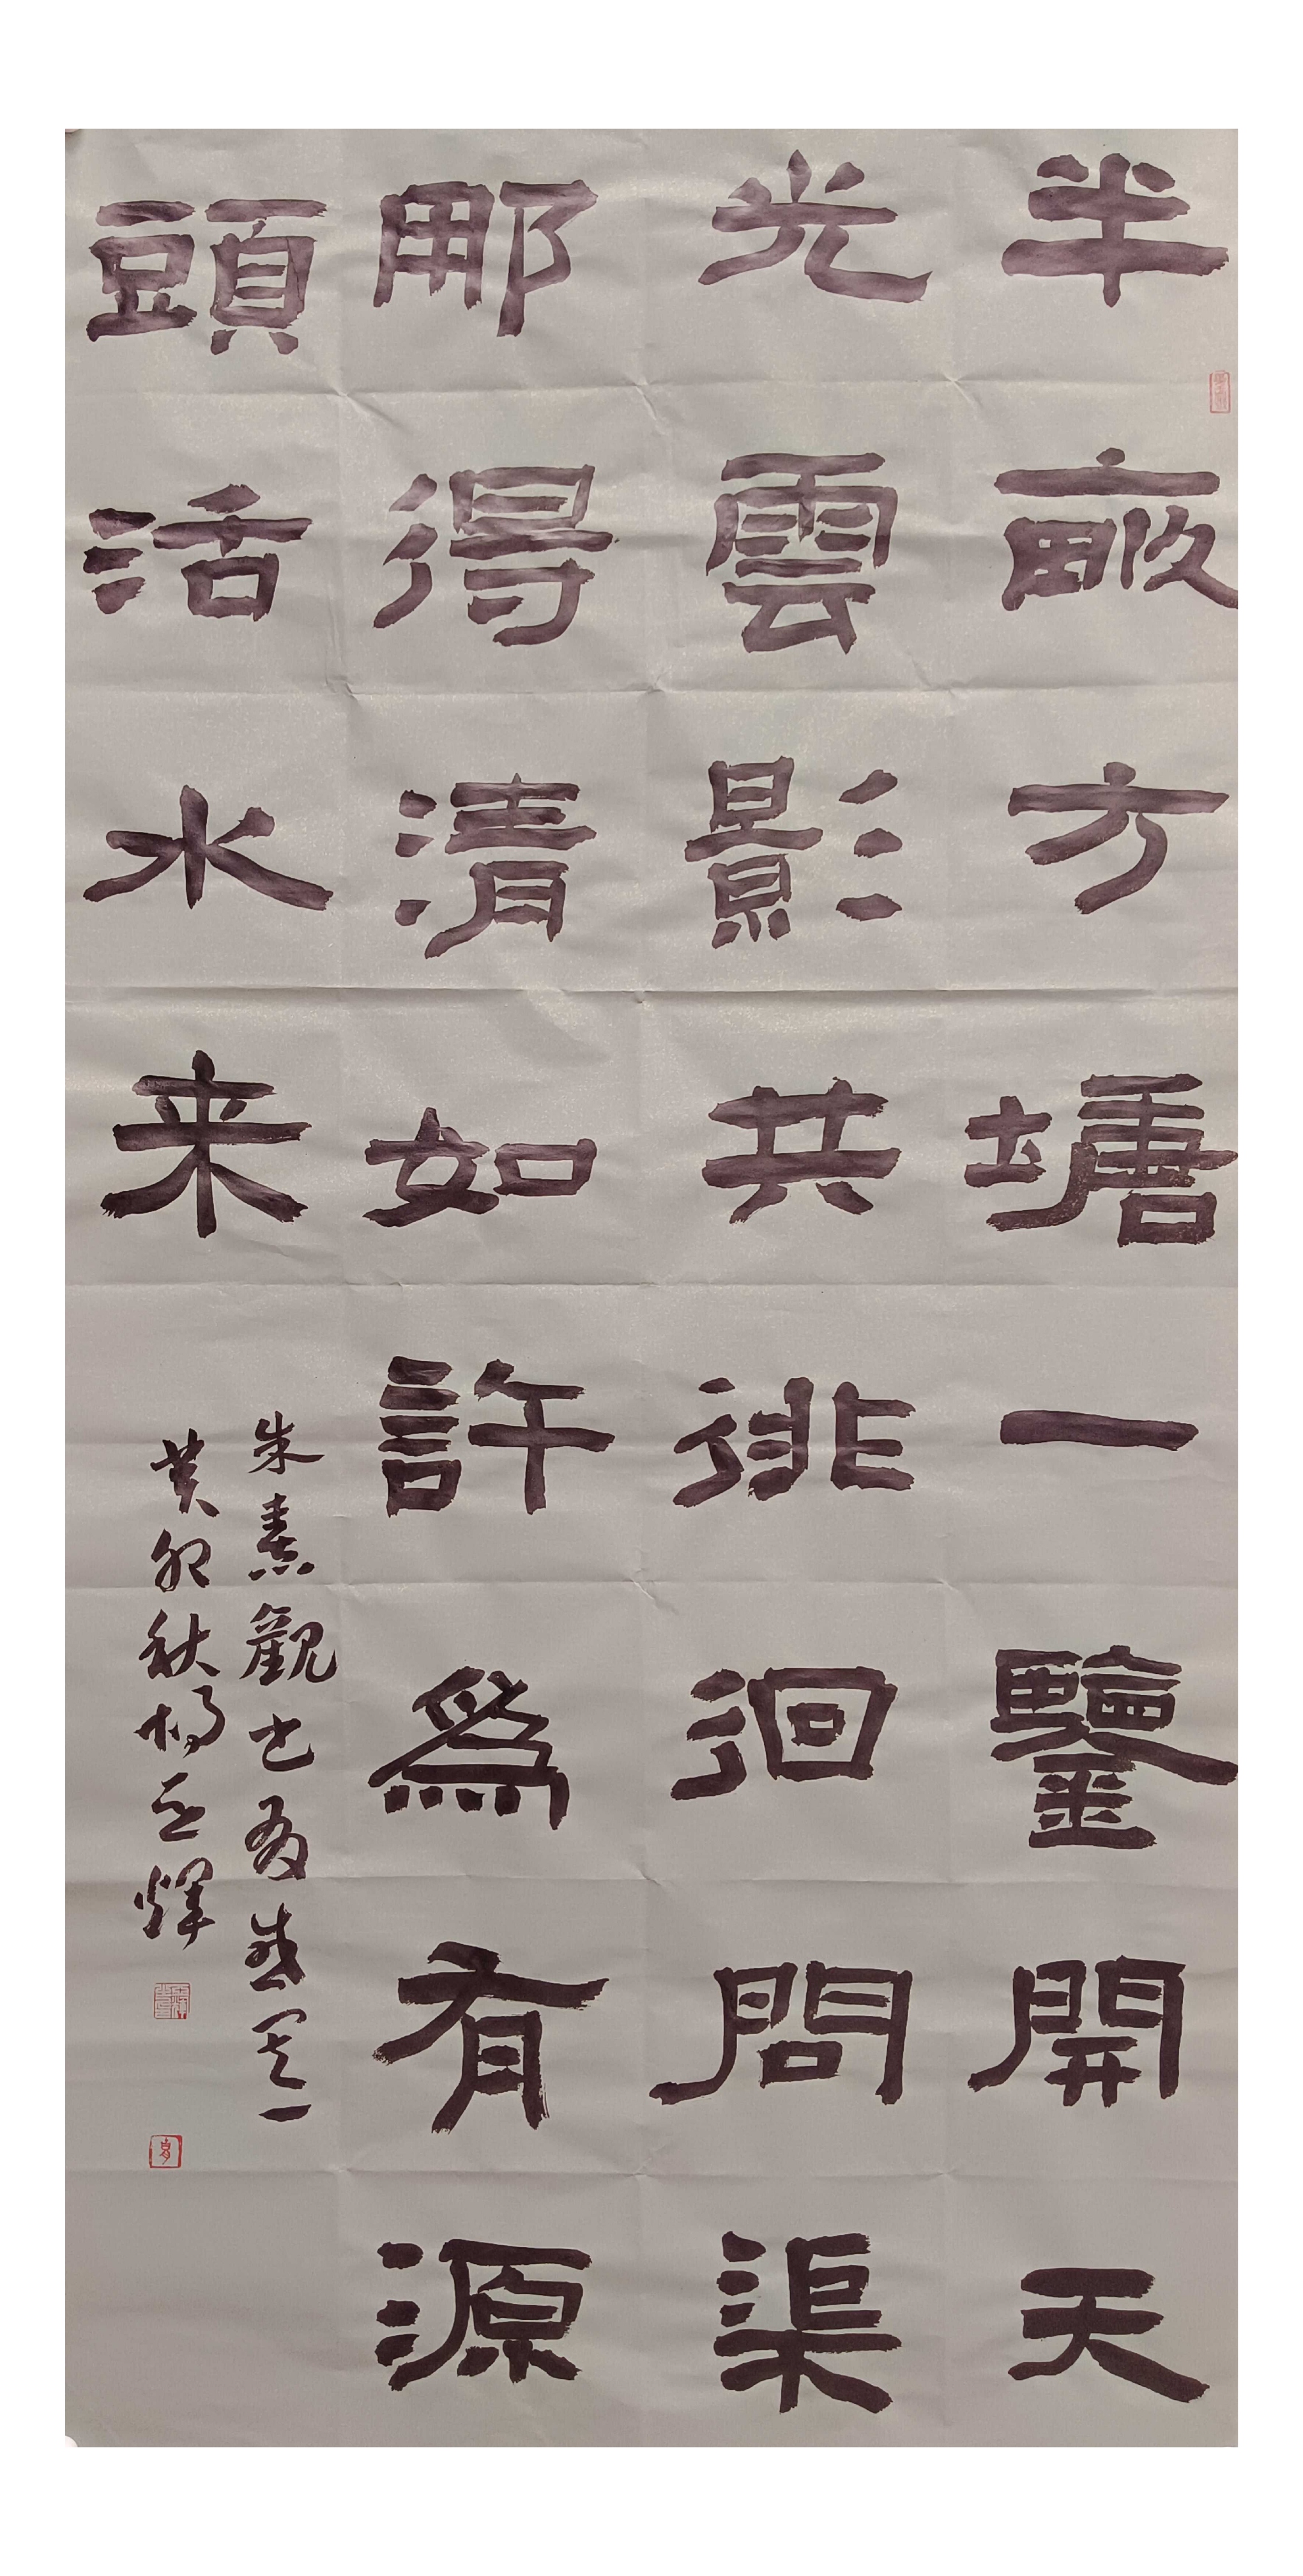 半畝方塘一鑒開天
光雲影共徘徊問渠
那得清如許為有源
頭活水来
朱熹觀書有感其一
癸卯秋楊正輝